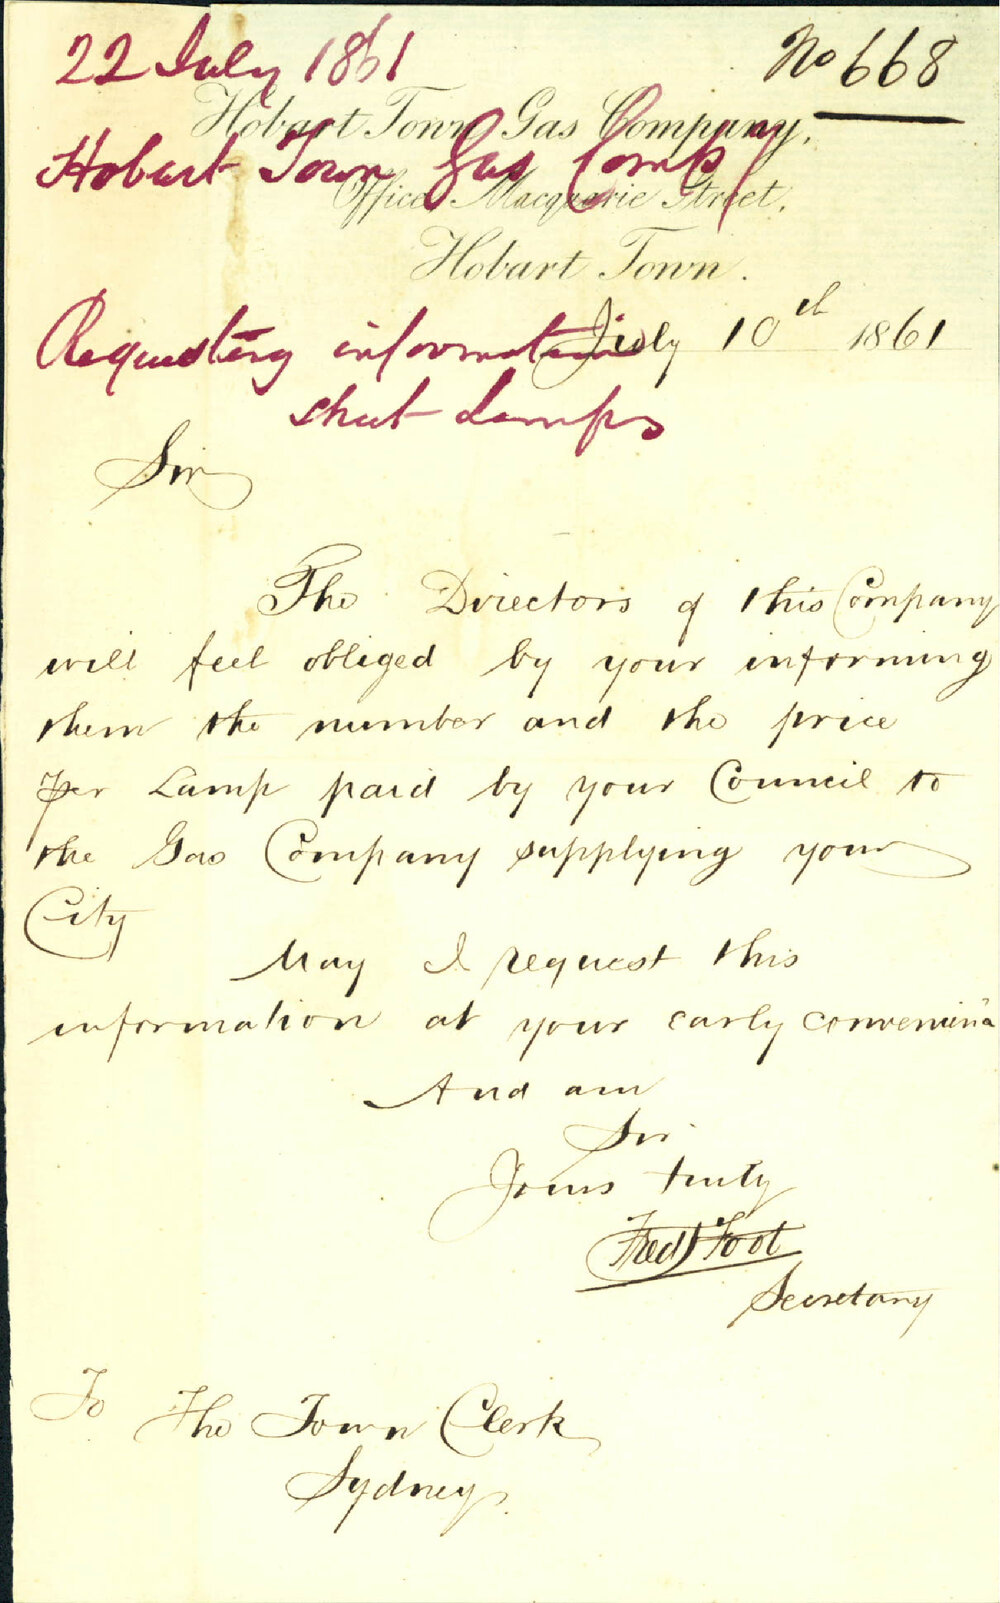 22 July 1861
No 668
Hobart Town Gas Company,
Hobart Town Gas Comp/
Office, Macquarie Street,
Hobart Town.
July 10th 1861
Requesting information
Street Lamps
Sir
The Directors of this Company
will feel obliged by your informing
them the number and the price
per Lamp paid by your Council to
the Gas Company supplying your
City
May I request this
information at your early convenience
And am
Sir
Yours truly
Fred Foot
Secretary
To The Town Clerk
Sydney.